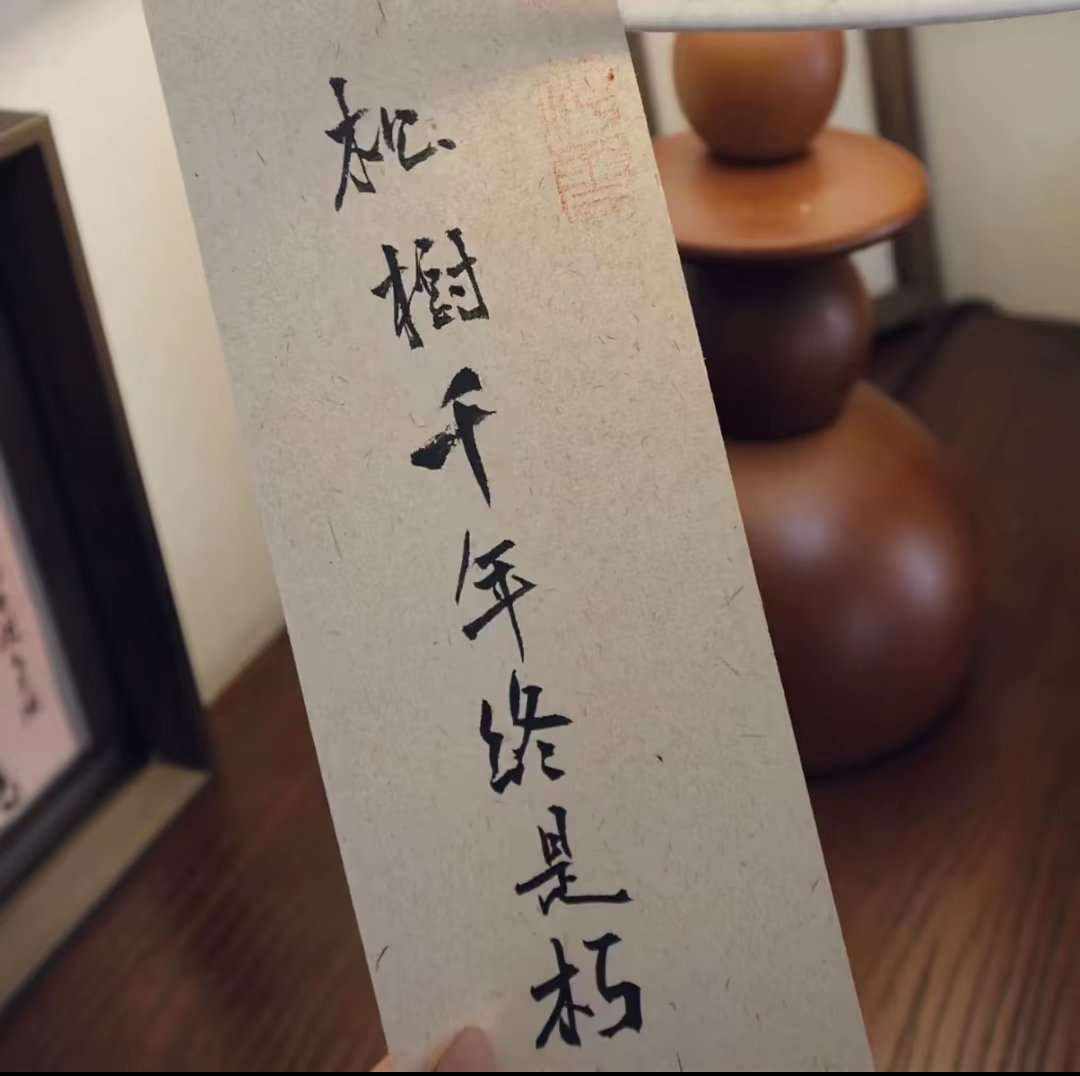 松樹千年终是朽